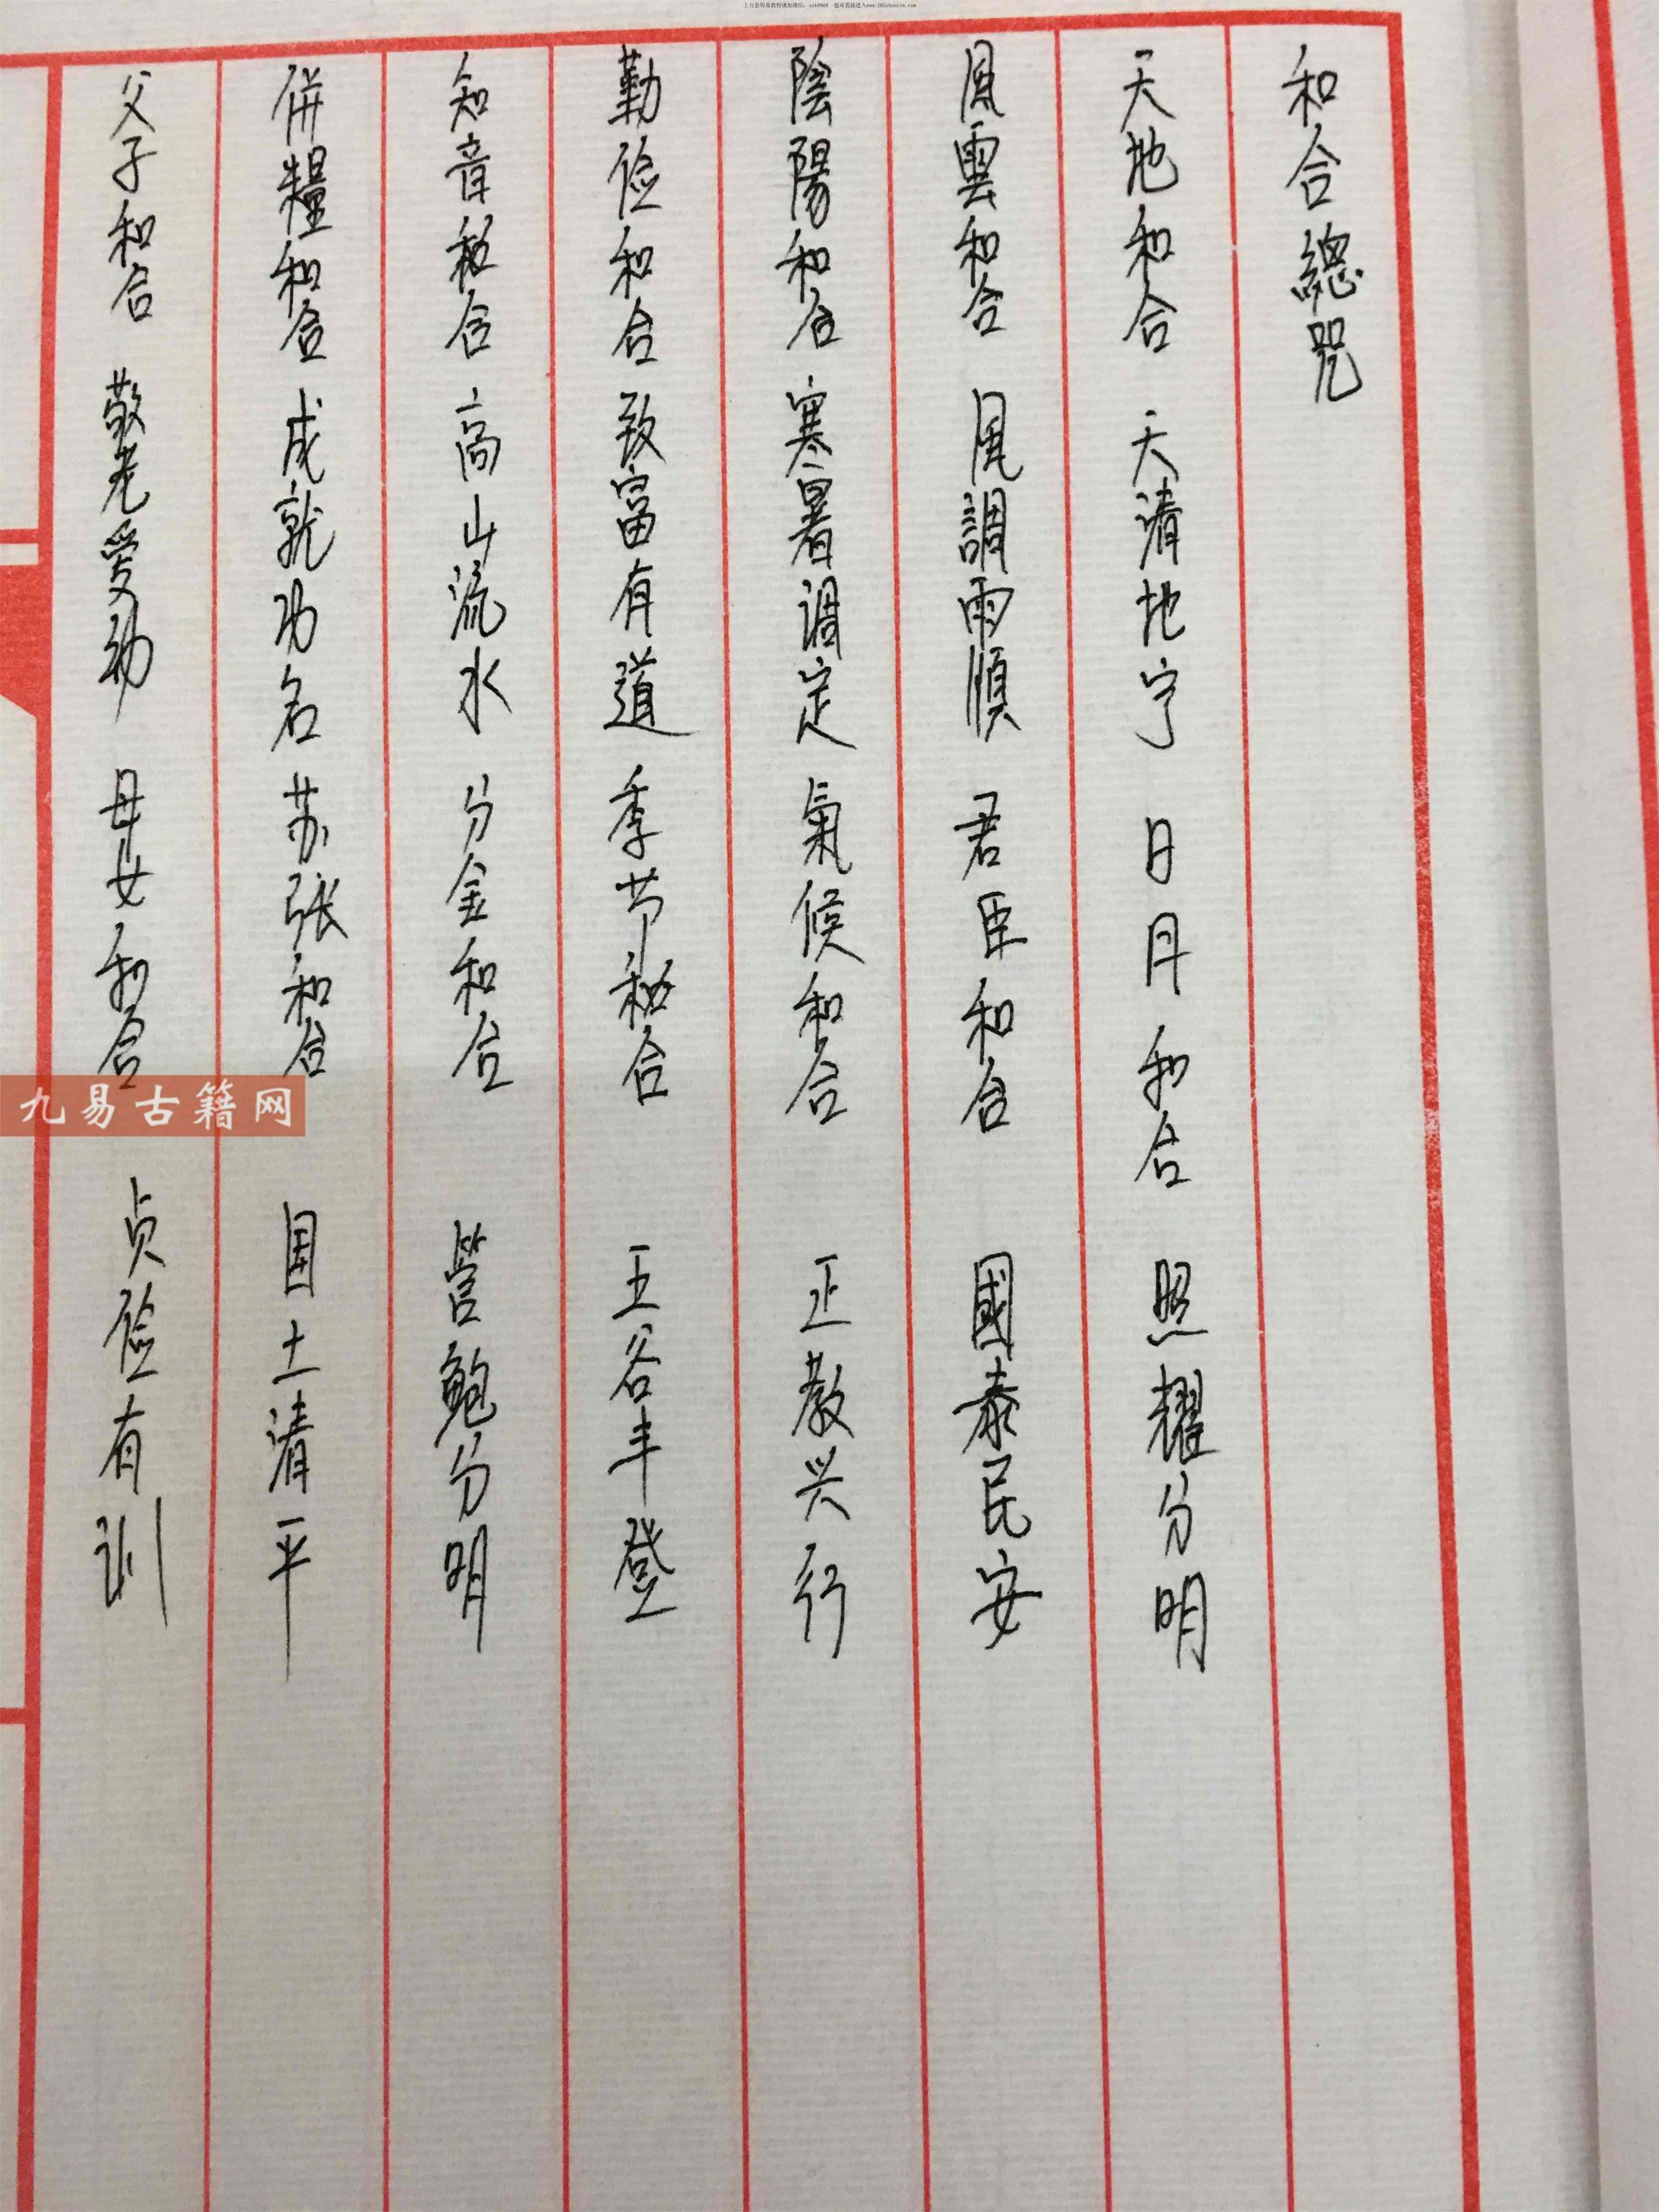 和合總咒
天地和合 天清地宁 日月和合 照耀分明
風雲和合 風調雨順 君臣和合 國泰民安
陰陽和合 寒暑调定 氣候和合 正教兴行
勤俭和合 致富有道 季节和合 五谷丰登
知音和合 高山流水 分金和合 管鲍分明
併糧和合 成就功名 苏张和合 国土清平
父子和合 敬老爱幼 母女和合 贞俭有训
九易古籍网